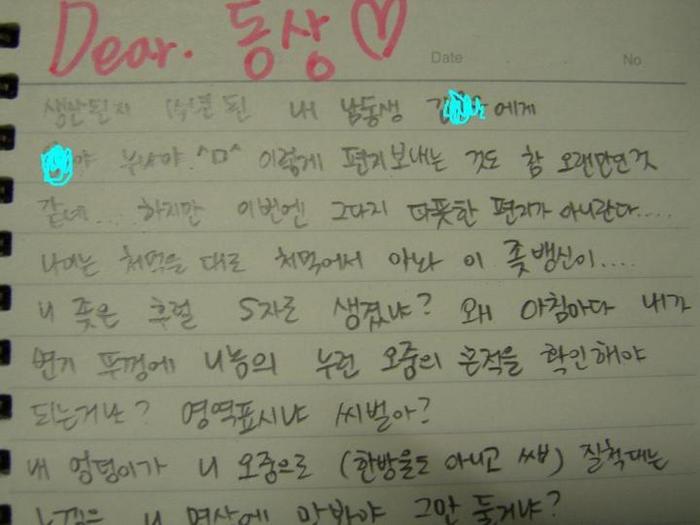 Dear. 동상 ♡
Date No
생산된지 된 내 남동생 김 에게
야 누나야. ^ㅁ^ 이렇게 편지보내는 것도 참 오랜만인것
같네... 하지만 이번엔 그다지 따뜻한 편지가 아니란다....
나이는 처먹을 대로 처먹어서 아놔 이 좆뱅신이....
니 좆은 후렬 S자로 생겼냐? 왜 아침마다 내가
변기 뚜껑에 니놈의 누런 오줌의 흔적을 확인해야
되는거냐? 영역표시냐 씨벌아?
내 엉덩이가 니 오줌으로 (한방울도 아니고 쌉) 질척대는
니 면상에 맛봐야 그만 둘거냐?